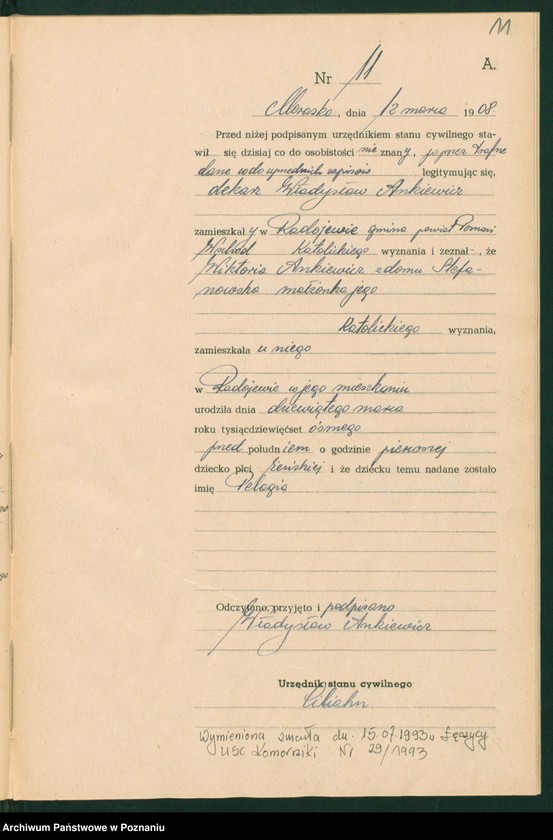 11
A.
Nr 11
Morasko, dnia 12 marca 1908.
Przed niżej podpisanym urzędnikiem stanu cywilnego sta-
wił się dzisiaj co do osobistości nie znany, poprzez trafne
dane co do uprzednich zapisów legitymując się,
dekarz Władysław Ankiewicz
zamieszkały w Radojewie gmina powiat Poznań
Wschód Katolickiego wyznania i zeznał-, że
Wiktoria Ankiewicz z domu Stefa-
nowska małżonka jego
Katolickiego wyznania,
zamieszkała u niego
w Radojewie w jego mieszkaniu
urodziła dnia dziewiątego marca
roku tysiącdziewięćset ósmego
przed południem o godzinie pierwszej
dziecko płci żeńskiej i że dziecku temu nadane zostało
imię Pelagia
Odczytano, przyjęto i podpisano
Władysław Ankiewicz
Urzędnik stanu cywilnego
Wymieniona zmarła dn. 15.07.1993 w Łęczycy
USC Komorniki Nr 29/1993
Archiwum Państwowe w Poznaniu